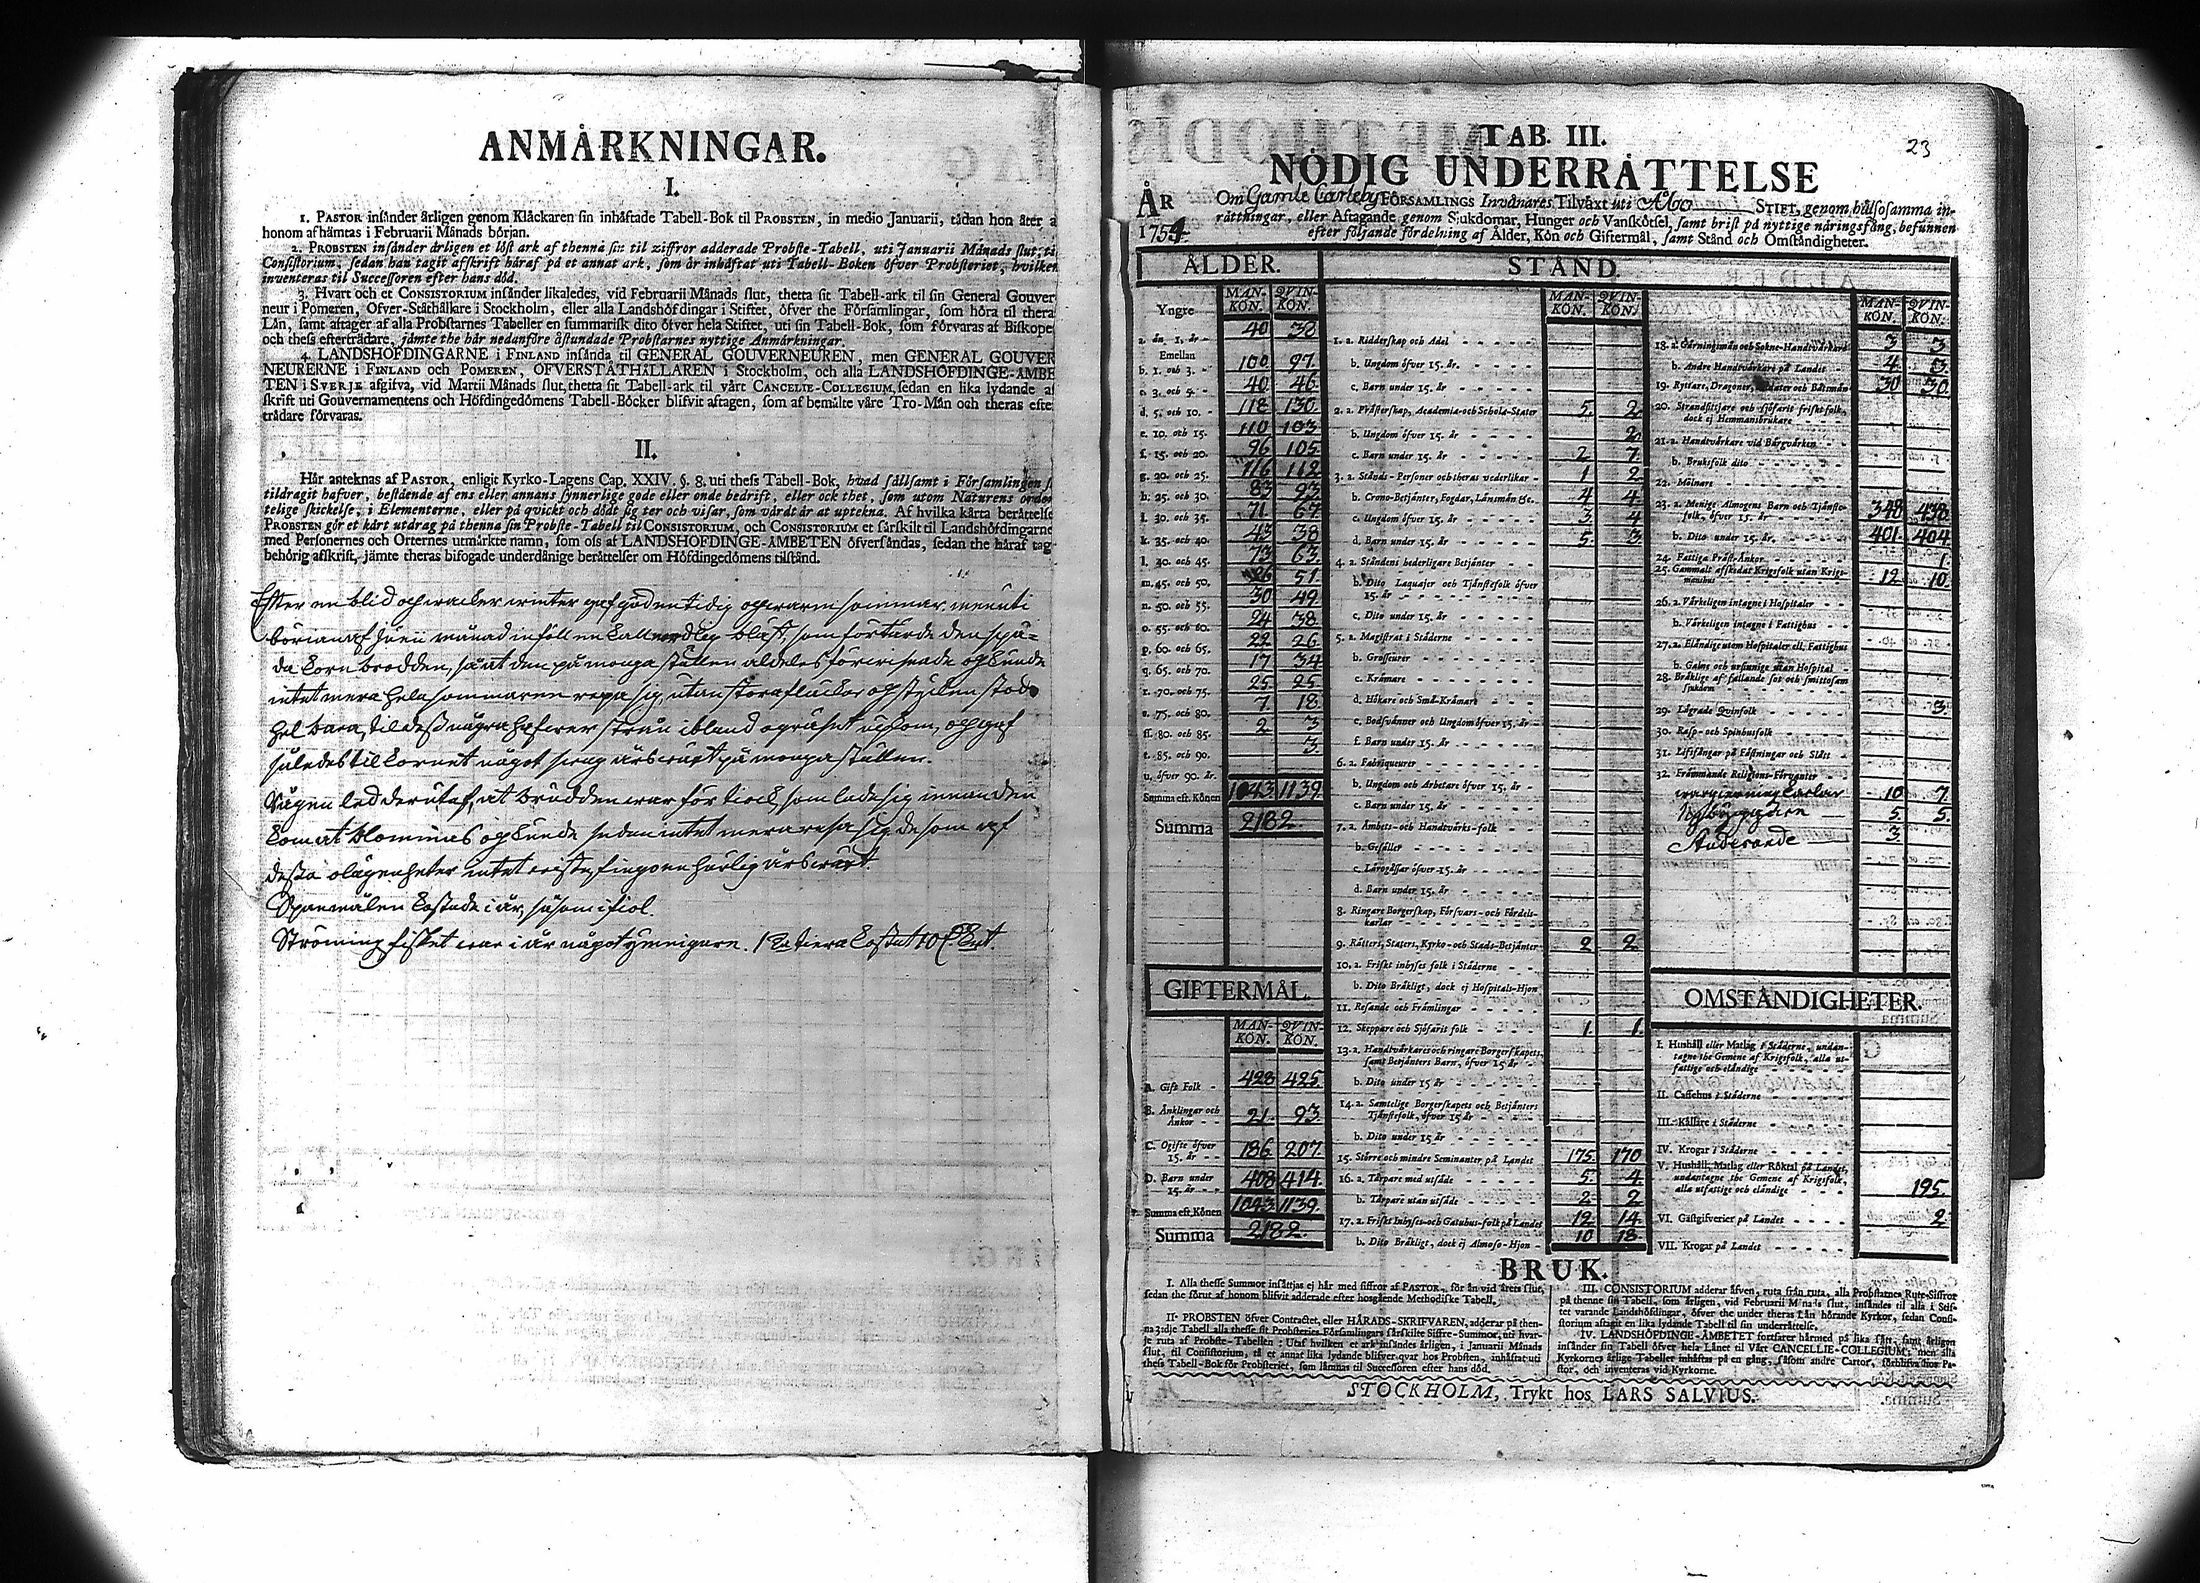 ANMÄRKNINGAR.
I.
1. PASTOR insänder årligen genom Klåckaren sin inhäftade Tabell-Bok til PROBSTEN, in medio Januarii, tädan hon åter a
honom afhämtas i Februarii Månads början.
2. PROBSTEN insänder årligen et löst ark af thenna sin til ziffror adderade Probste-Tabell, uti Januarii Månads slut, til
Consistorium, sedan han tagit afskrift häraf på et annat ark, som är inhäftat uti Tabell-Boken öfver Probsteriet, hvilken
inventeras til Successoren efter hans död.
3. Hvart och et CONSISTORIUM insänder likaledes, vid Februarii Månads slut, thetta sit Tabell-ark til sin General Gouver
neur i Pomeren, Öfver-Ståthållare i Stockholm, eller alla Landshöfdingar i Stiftet, öfver the Församlingar, som höra til thera
Län, samt aftager af alla Probstarnes Tabeller en summarisk dito öfver hela Stiftet, uti sin Tabell-Bok, som förvaras af Biskope
och thess efterträdare, jämte the här nedanföre åstundade Probstarnes nyttige Anmärkningar.
4. LANDSHÖFDINGARNE i FINLAND insända til GENERAL GOUVERNEUREN, men GENERAL GOUVER
NEURERNE i FINLAND och POMEREN, ÖFVERSTÅTHÅLLAREN i Stockholm, och alla LANDSHÖFDINGE-ÄMBE
TEN i SVERJE afgifva, vid Martii Månads slut, thetta sit Tabell-ark til vårt CANCELIE-COLLEGIUM, sedan en lika lydande af
skrift uti Gouvernamentens och Höfdingedömens Tabell-Böcker blifvit aftagen, som af bemälte våre Tro-Män och theras efte
trädare förvaras.
II.
Här anteknas af PASTOR, enligit Kyrko-Lagens Cap. XXIV. §. 8. uti thess Tabell-Bok, hvad sällsamt i Församlingen s
tildragit hafver, bestående af ens eller annans synnerlige gode eller onde bedrift, eller ock thet, som utom Naturens orden
telige skickelse, i Elementerne, eller på qvickt och dödt sig ter och visar, som värdt är at uptekna. Af hvilka kårta berättelse
PROBSTEN gör et kårt utdrag på thenna sin Probste-Tabell til CONSISTORIUM, och CONSISTORIUM et särskilt til Landshöfdingarne
med Personernes och Orternes utmärkte namn, som oss af LANDSHÖFDINGE-ÄMBETEN öfversändas, sedan the häraf tag
behörig afskrift, jämte theras bifogade underdånige berättelser om Höfdingedömens tilstånd.
Efter en blid och wacker winter gaf gud en tidig och warm sommar, men uti
början af Junii månad inföll en kall nordlig blåst, som förtärde den spä-
da Korn brodden, så at den på monga ställen aldeles förwisnade och kunde
intet mera hela sommaren repa sig, utan stora fläckar och stycken stodo
hel bara, til dess några hafwer strån ibland ogräset upkom, och gaf
således til kornet något swag årswäxt på monga ställen.
Rågen led derutaf, at brodden war för tiock, som lade sig innan den
kom at blommas och kunde sedan intet mera resa sig, de som af
dessa olägenheter intet wiste, fingo en härlig årswäxt.
Spanmålen kostade i år, såsom i fiol.
Strömming fisket war i år något ymnigare. 1 tiera kostat 10
23
TAB. III.
NÖDIG UNDERRÄTTELSE
ÅR 1754
Om Gamle Carleby FÖRSAMLINGS Invånares Tilväxt uti Åbo STIFT, genom hälsosamma in-
rättningar, eller Aftagande genom Sjukdomar, Hunger och Vanskötsel, samt brist på nyttige näringsfång, befunnen
efter följande fördelning af Ålder, Kön och Giftermål, samt Stånd och Omständigheter.
ÅLDER.
Yngre MAN-KÖN. QVIN-KÖN.
a. än 1. år 40 38
Emellan
b. 1. och 3. 100 97
c. 3. och 5. 40 46
d. 5. och 10. 118 130
e. 10. och 15. 110 103
f. 15. och 20. 96 105
g. 20. och 25. 116 112
h. 25. och 30. 83 93
i. 30. och 35. 71 67
k. 35. och 40. 43 38
l. 40. och 45. 73 63
m. 45. och 50. 26 51
n. 50. och 55. 30 49
o. 55. och 60. 24 38
p. 60. och 65. 22 26
q. 65. och 70. 17 34
r. 70. och 75. 25 25
s. 75. och 80. 7 18
ff. 80. och 85. 2 3
t. 85. och 90. 3
u. öfver 90. år.
Summa eft. Könen 1043 1139
Summa 2182
GIFTERMÅL.
MAN-KÖN. QVIN-KÖN.
A. Gift Folk 428 425
B. Änklingar och Änkor 21 93
C. Ogifte öfver 15. år 186 207
D. Barn under 15. år 408 414
Summa eft. Könen 1043 1139
Summa 2182
STÅND.
MAN-KÖN. QVIN-KÖN.
1. a. Ridderskap och Adel
b. Ungdom öfver 15. år.
c. Barn under 15. år
2. a. Prästerskap, Academia-och Schola-Stater 5 2
b. Ungdom öfver 15. år 2
c. Barn under 15. år 2 7
3. a. Stånds-Personer och theras vederlikar 1 2
b. Crono-Betjänter, Fogdar, Länsmän &c. 4 4
c. Ungdom öfver 15. år 3 4
d. Barn under 15. år 5 3
4. a. Ståndens hederligare Betjänter
b. Dito Laquajer och Tjänstefolk öfver 15. år
c. Dito under 15. år
5. a. Magistrat i Städerne
b. Grosseurer
c. Krämare
d. Hökare och Små-Krämare
e. Bodsvänner och Ungdom öfver 15. år
f. Barn under 15. år
6. a. Fabriqueurer
b. Ungdom och Arbetare öfver 15. år
c. Barn under 15. år
7. a. Ämbets-och Handtvärks-folk
b. Gesäller
c. Lärogåssar öfver 15. år
d. Barn under 15. år
8. Ringare Borgerskap, Försvars-och Färdels-karlar
9. Rätters, Staters, Kyrko-och Stads-Betjänter 2 2
10. a. Friskt inhyses folk i Städerne
b. Dito Bräkligt, dock ej Hospitals-Hjon
11. Resande och Främlingar
12. Skeppare och Sjöfarit folk 1 1
13. a. Handtvärkares och ringare Borgerskapets, samt Betjänters Barn, öfver 15 år
b. Dito under 15 år
14. a. Samtelige Borgerskapets och Betjänters Tjänstefolk, öfver 15 år
b. Dito under 15 år
15. Större och mindre Seminanter på Landet 175 170
16. a. Tårpare med utsäde 5 4
b. Tårpare utan utsäde 2 2
17. a. Friskt Inhyses-och Gatuhus-folk på Landet 12 14
b. Dito Bräkligt, dock ej Almoso-Hjon 10 18
MAN-KÖN. QVIN-KÖN.
18. a. Gärningsmän och Sokne-Handtvärkare 3 3
b. Andre Handtvärkare på Landet 4 3
19. Ryttare, Dragoner, Soldater och Båtsmän 30 30
20. Strandsittjare och sjöfarit friskt folk, dock ej Hemmansbrukare
21. a. Handtvärkare vid Bärgvärken
b. Bruksfolk dito
22. Mölnare
23. a. Menige Almogens Barn och Tjänste-folk, öfver 15. år 348 438
b. Dito under 15. år. 401 404
24. Fattiga Präst-Änkor 1
25. Gammalt afskedat Krigsfolk utan Krigs-manshus 12 10
26. a. Värkeligen intagne i Hospitaler
b. Värkeligen intagne i Fattighus
27. a. Eländige utom Hospitaler ell. Fattighus
b. Galne och ursinnige utan Hospital
28. Bräklige af fallande sot och smittosam sjukdom
29. Lägrade Qvinfolk 3
30. Rasp-och Spinhusfolk
31. Lifsfångar på Fästningar och Slått
32. Främmande Religions-Förvanter
10 7
Nybyggare 5 5
Studerande 3
OMSTÄNDIGHETER.
I. Hushåll eller Matlag i Städerne, undan-tagne the Gemene af Krigsfolk, alla ut-fattige och eländige
II. Caffehus i Städerne
III. Källare i Städerne
IV. Krogar i Städerne
V. Hushåll, Matlag eller Röktal på Landet, undantagne the Gemene af Krigsfolk, alla utfattige och eländige 195
VI. Gästgifverier på Landet 2
VII. Krogar på Landet
BRUK.
I. Alla thesse Summor insättjas ej här med siffror af PASTOR, för än vid årets slut,
sedan the förut af honom blifvit adderade efter hosgående Methodiske Tabell.
II. PROBSTEN öfver Contractet, eller HÄRADS-SKRIFVAREN, adderar på then-
na 3:dje Tabell alla thesse sit Probsteries Församlingars särskilte Siffre-Summor, uti hvar-
je ruta af Probste-Tabellen: Utaf hvilken et ark insändes årligen, i Januarii Månads
slut, til Consistorium, så et annat lika lydande blifver qvar hos Probsten, inhäftat uti
thess Tabell-Bok för Probsteriet, som lämnas til Successoren efter hans död.
III. CONSISTORIUM adderar äfven, ruta från ruta, alla Probstarnes Rute-Siffror
på thenne sin Tabell, som årligen, vid Februarii Månads slut, insändes til alla i Stif-
tet varande Landshöfdingar, öfver the under theras Län hörande Kyrkor, sedan Consi-
storium aftagit en lika lydande Tabell til sin underrättelse.
IV. LANDSHÖFDINGE-ÄMBETET fortfarer härmed på lika sätt, samt årligen
insänder sin Tabell öfver hela Länet til Vårt CANCELLIE-COLLEGIUM; men alla
Kyrkornes årlige Tabeller inhäftas på en gång, såsom andre Cartor, förblifva hos Pa-
stor, och inventeras vid Kyrkorne.
STOCKHOLM, Trykt hos LARS SALVIUS.